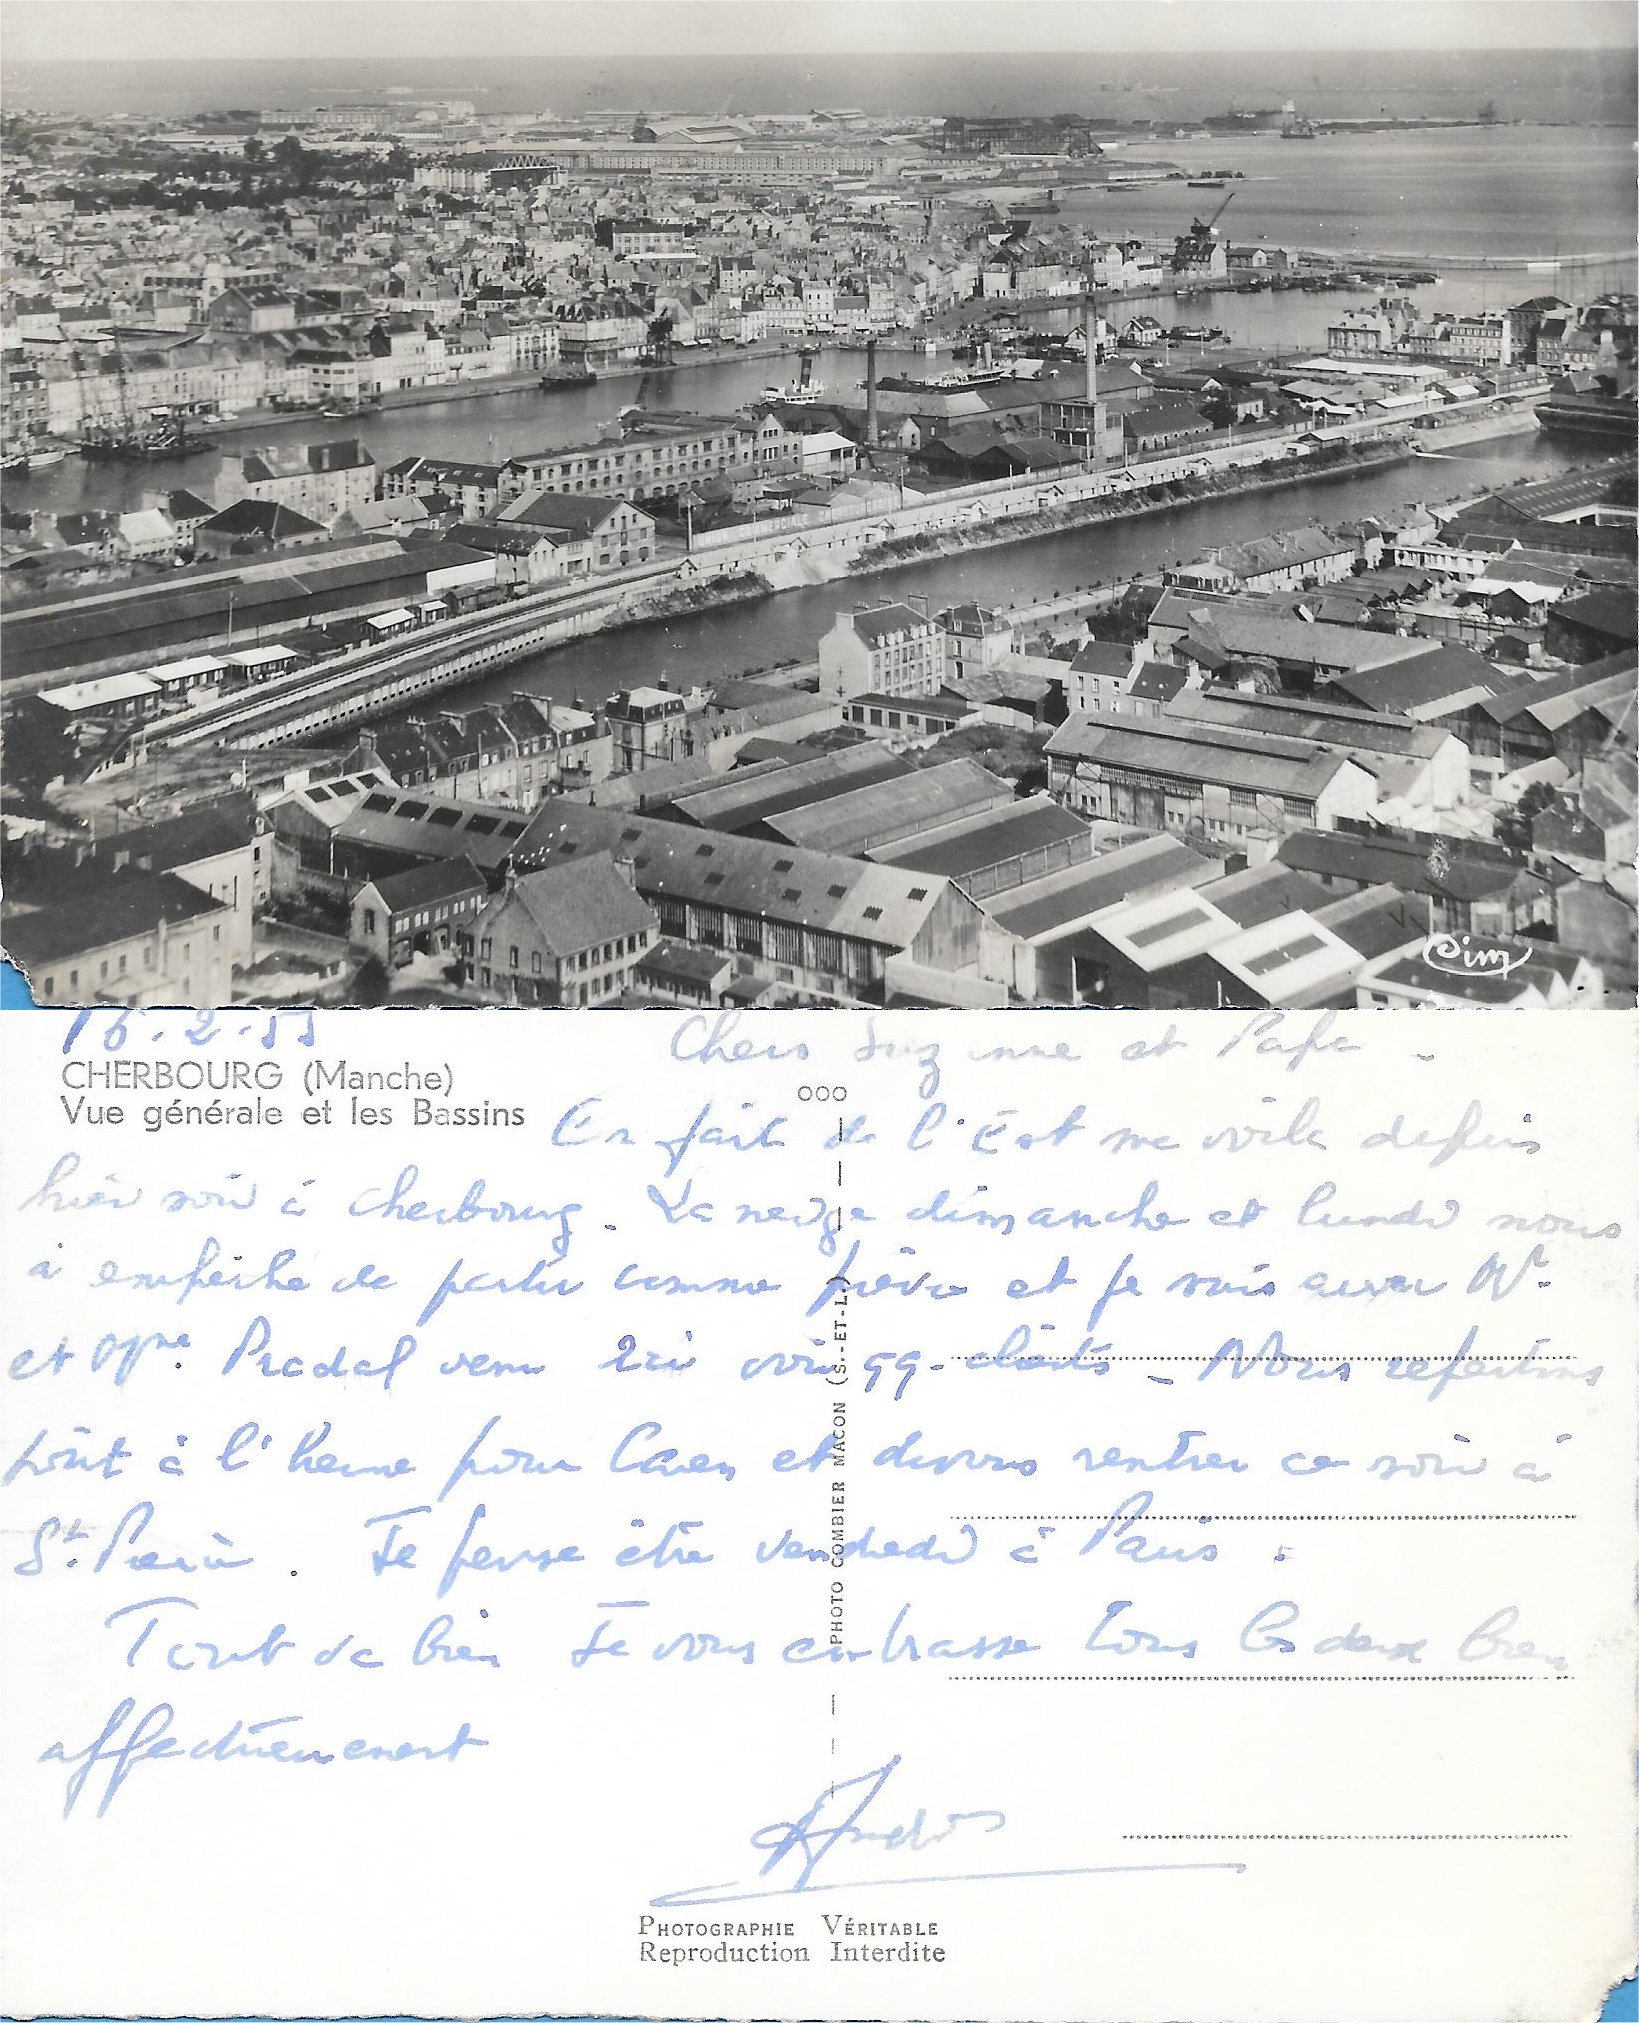 UNION COMMERCIALE
Cim
16.2.55
CHERBOURG (Manche)
Vue générale et les Bassins
Chers Suzanne et Papa -
En fait de l'Est me voila depuis
hier soir à Cherbourg. La neige dimanche et lundi nous
à empêché de partir comme prévu et je suis avec Mr.
et Mme. Pradal venu ici voir qq. clients - Nous repartons
tout à l'heure pour Caen et devons rentrer ce soir à
St. Je pense être vendredi à Paris.
Tout va bien Je vous embrasse tous les deux bien
affectueusement
André
OOO
PHOTO COMBIER MACON (S.-ET-L.)
PHOTOGRAPHIE VÉRITABLE
Reproduction Interdite